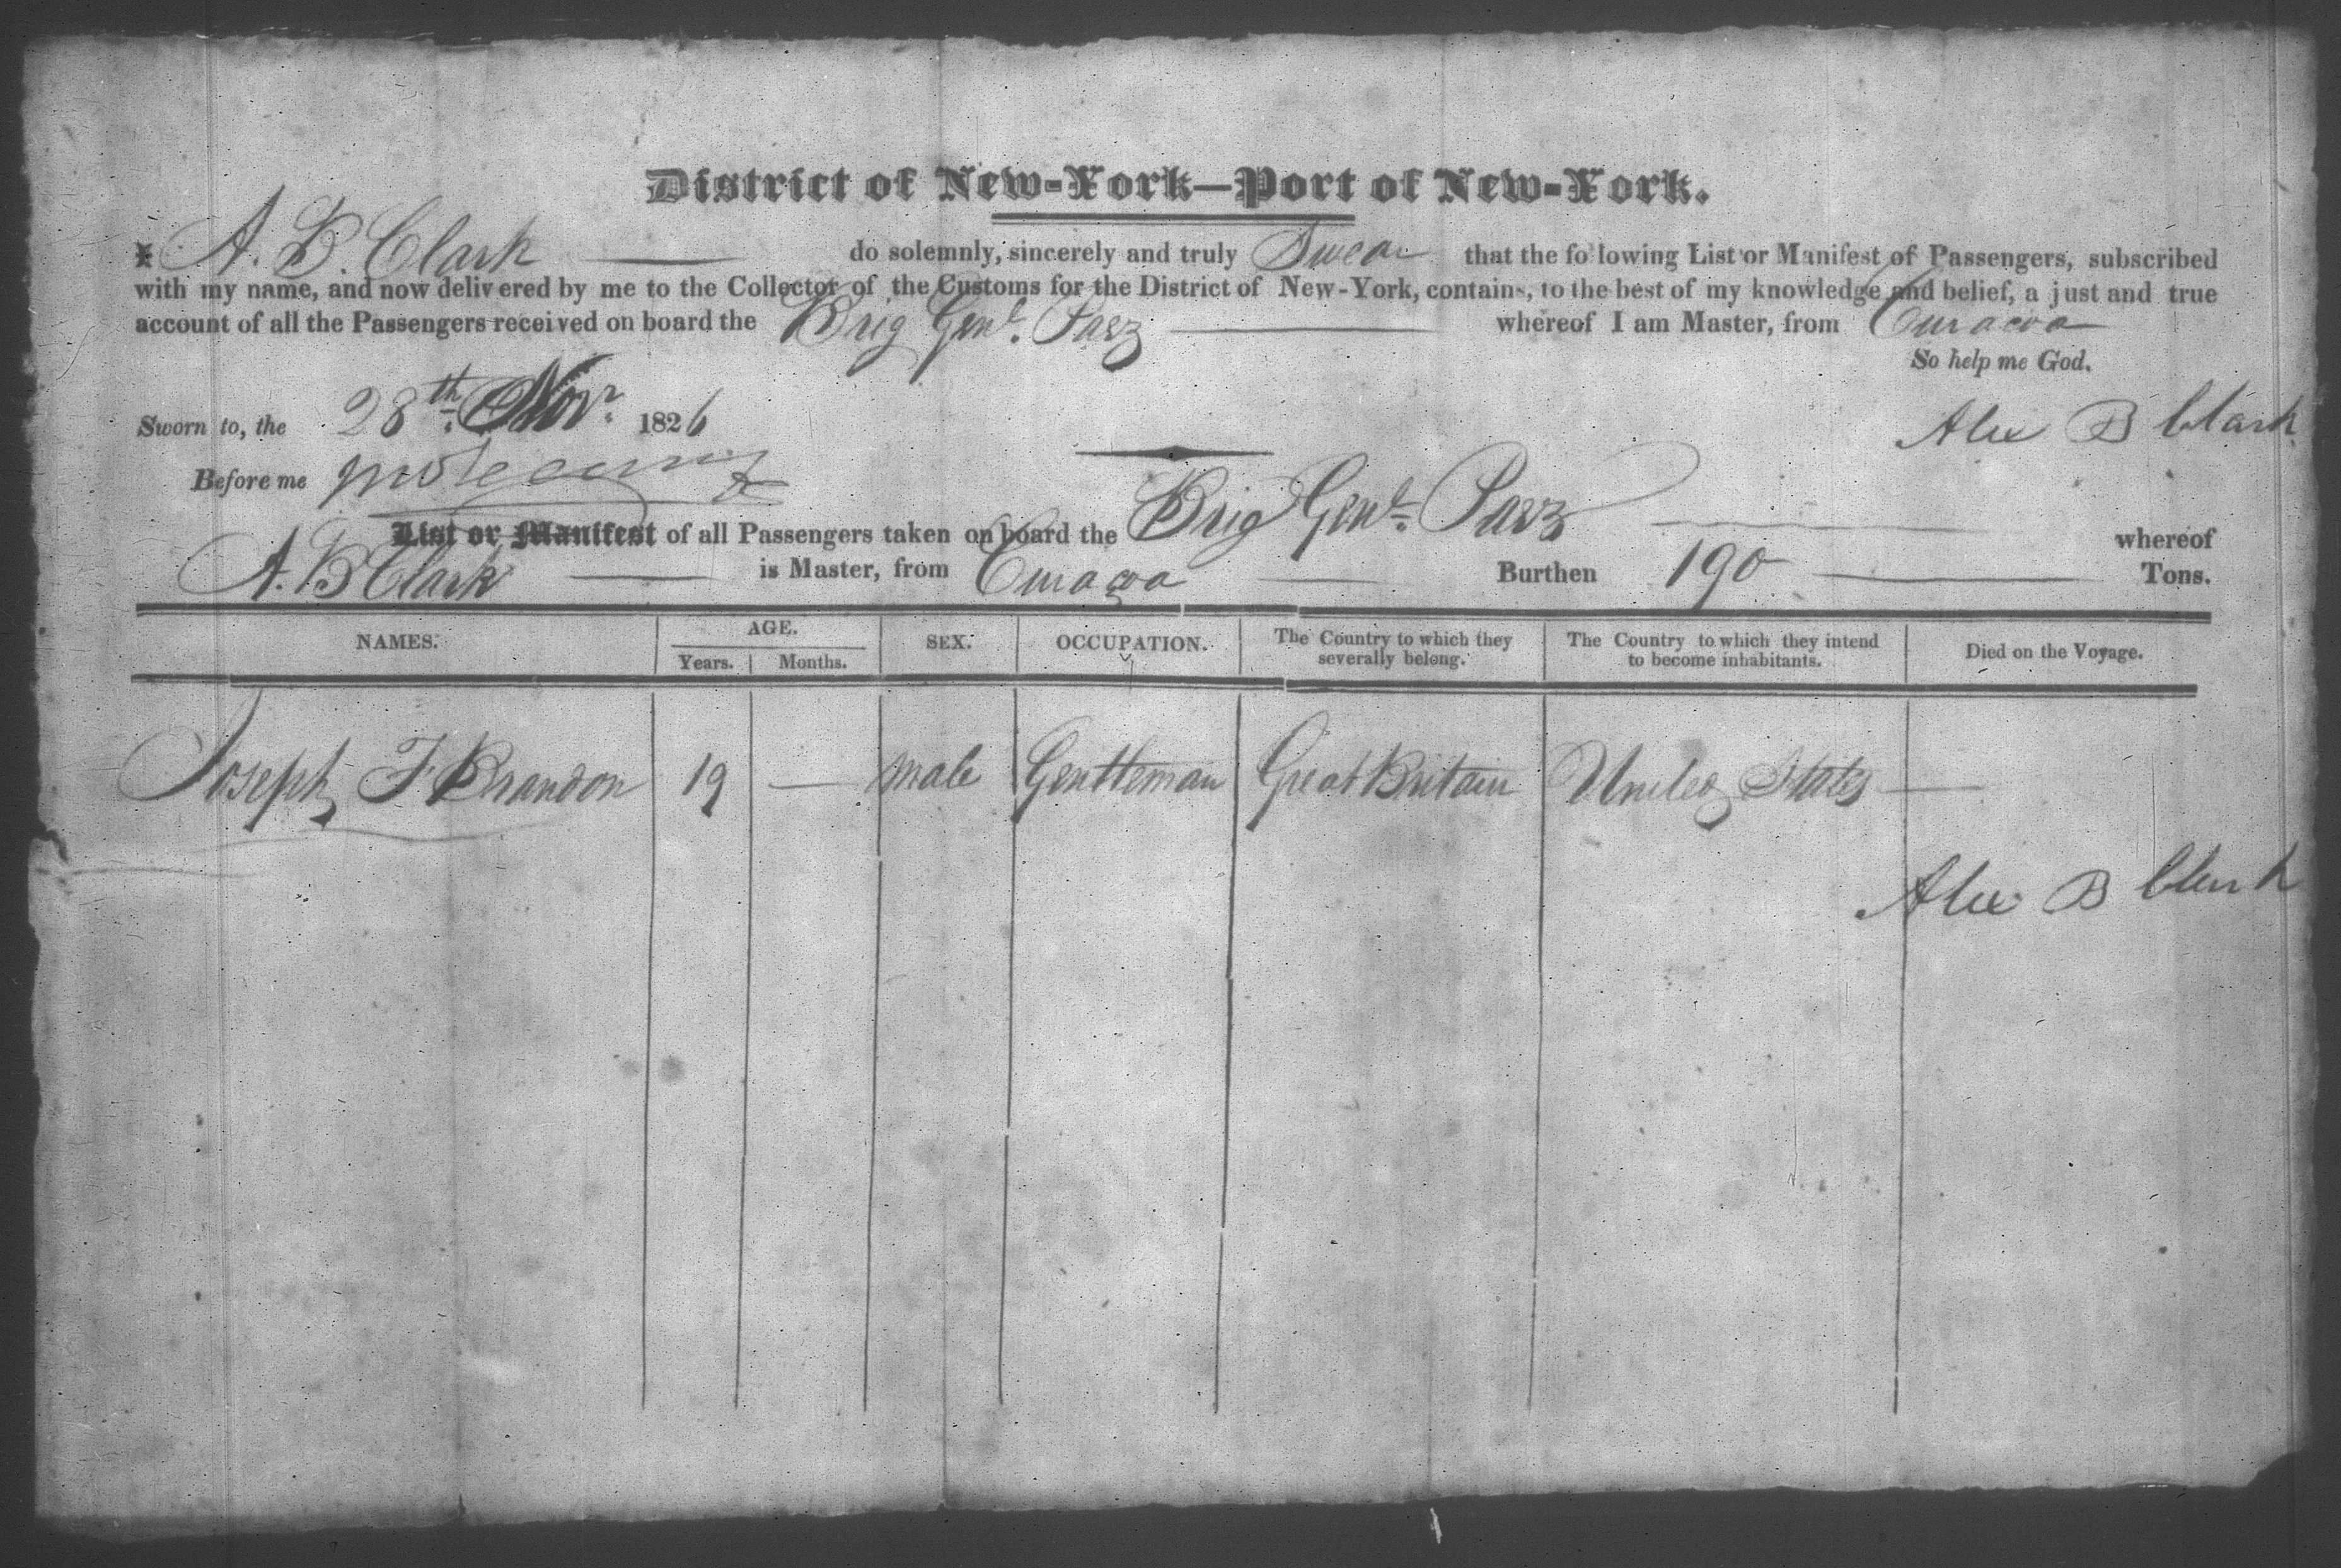 District of New-York—Port of New-York.
I A. B. Clark do solemnly, sincerely and truly Swear that the following List or Manifest of Passengers, subscribed
with my name, and now delivered by me to the Collector of the Customs for the District of New-York, contains, to the best of my knowledge and belief, a just and true
account of all the Passengers received on board the Brig Genl. Paez whereof I am Master, from Curacoa
So help me God.
Sworn to, the 28th. Novr. 1826
Alex B Clark
Before me
List or Manifest of all Passengers taken on board the Brig Genl. Paez whereof
A. B Clark is Master, from Curacoa Burthen 190 Tons.
NAMES. AGE. Years. Months. SEX. OCCUPATION. The Country to which they severally belong. The Country to which they intend to become inhabitants. Died on the Voyage.
Joseph F Brandon 19 — male Gentleman Great Britain United States —
Alex B Clark